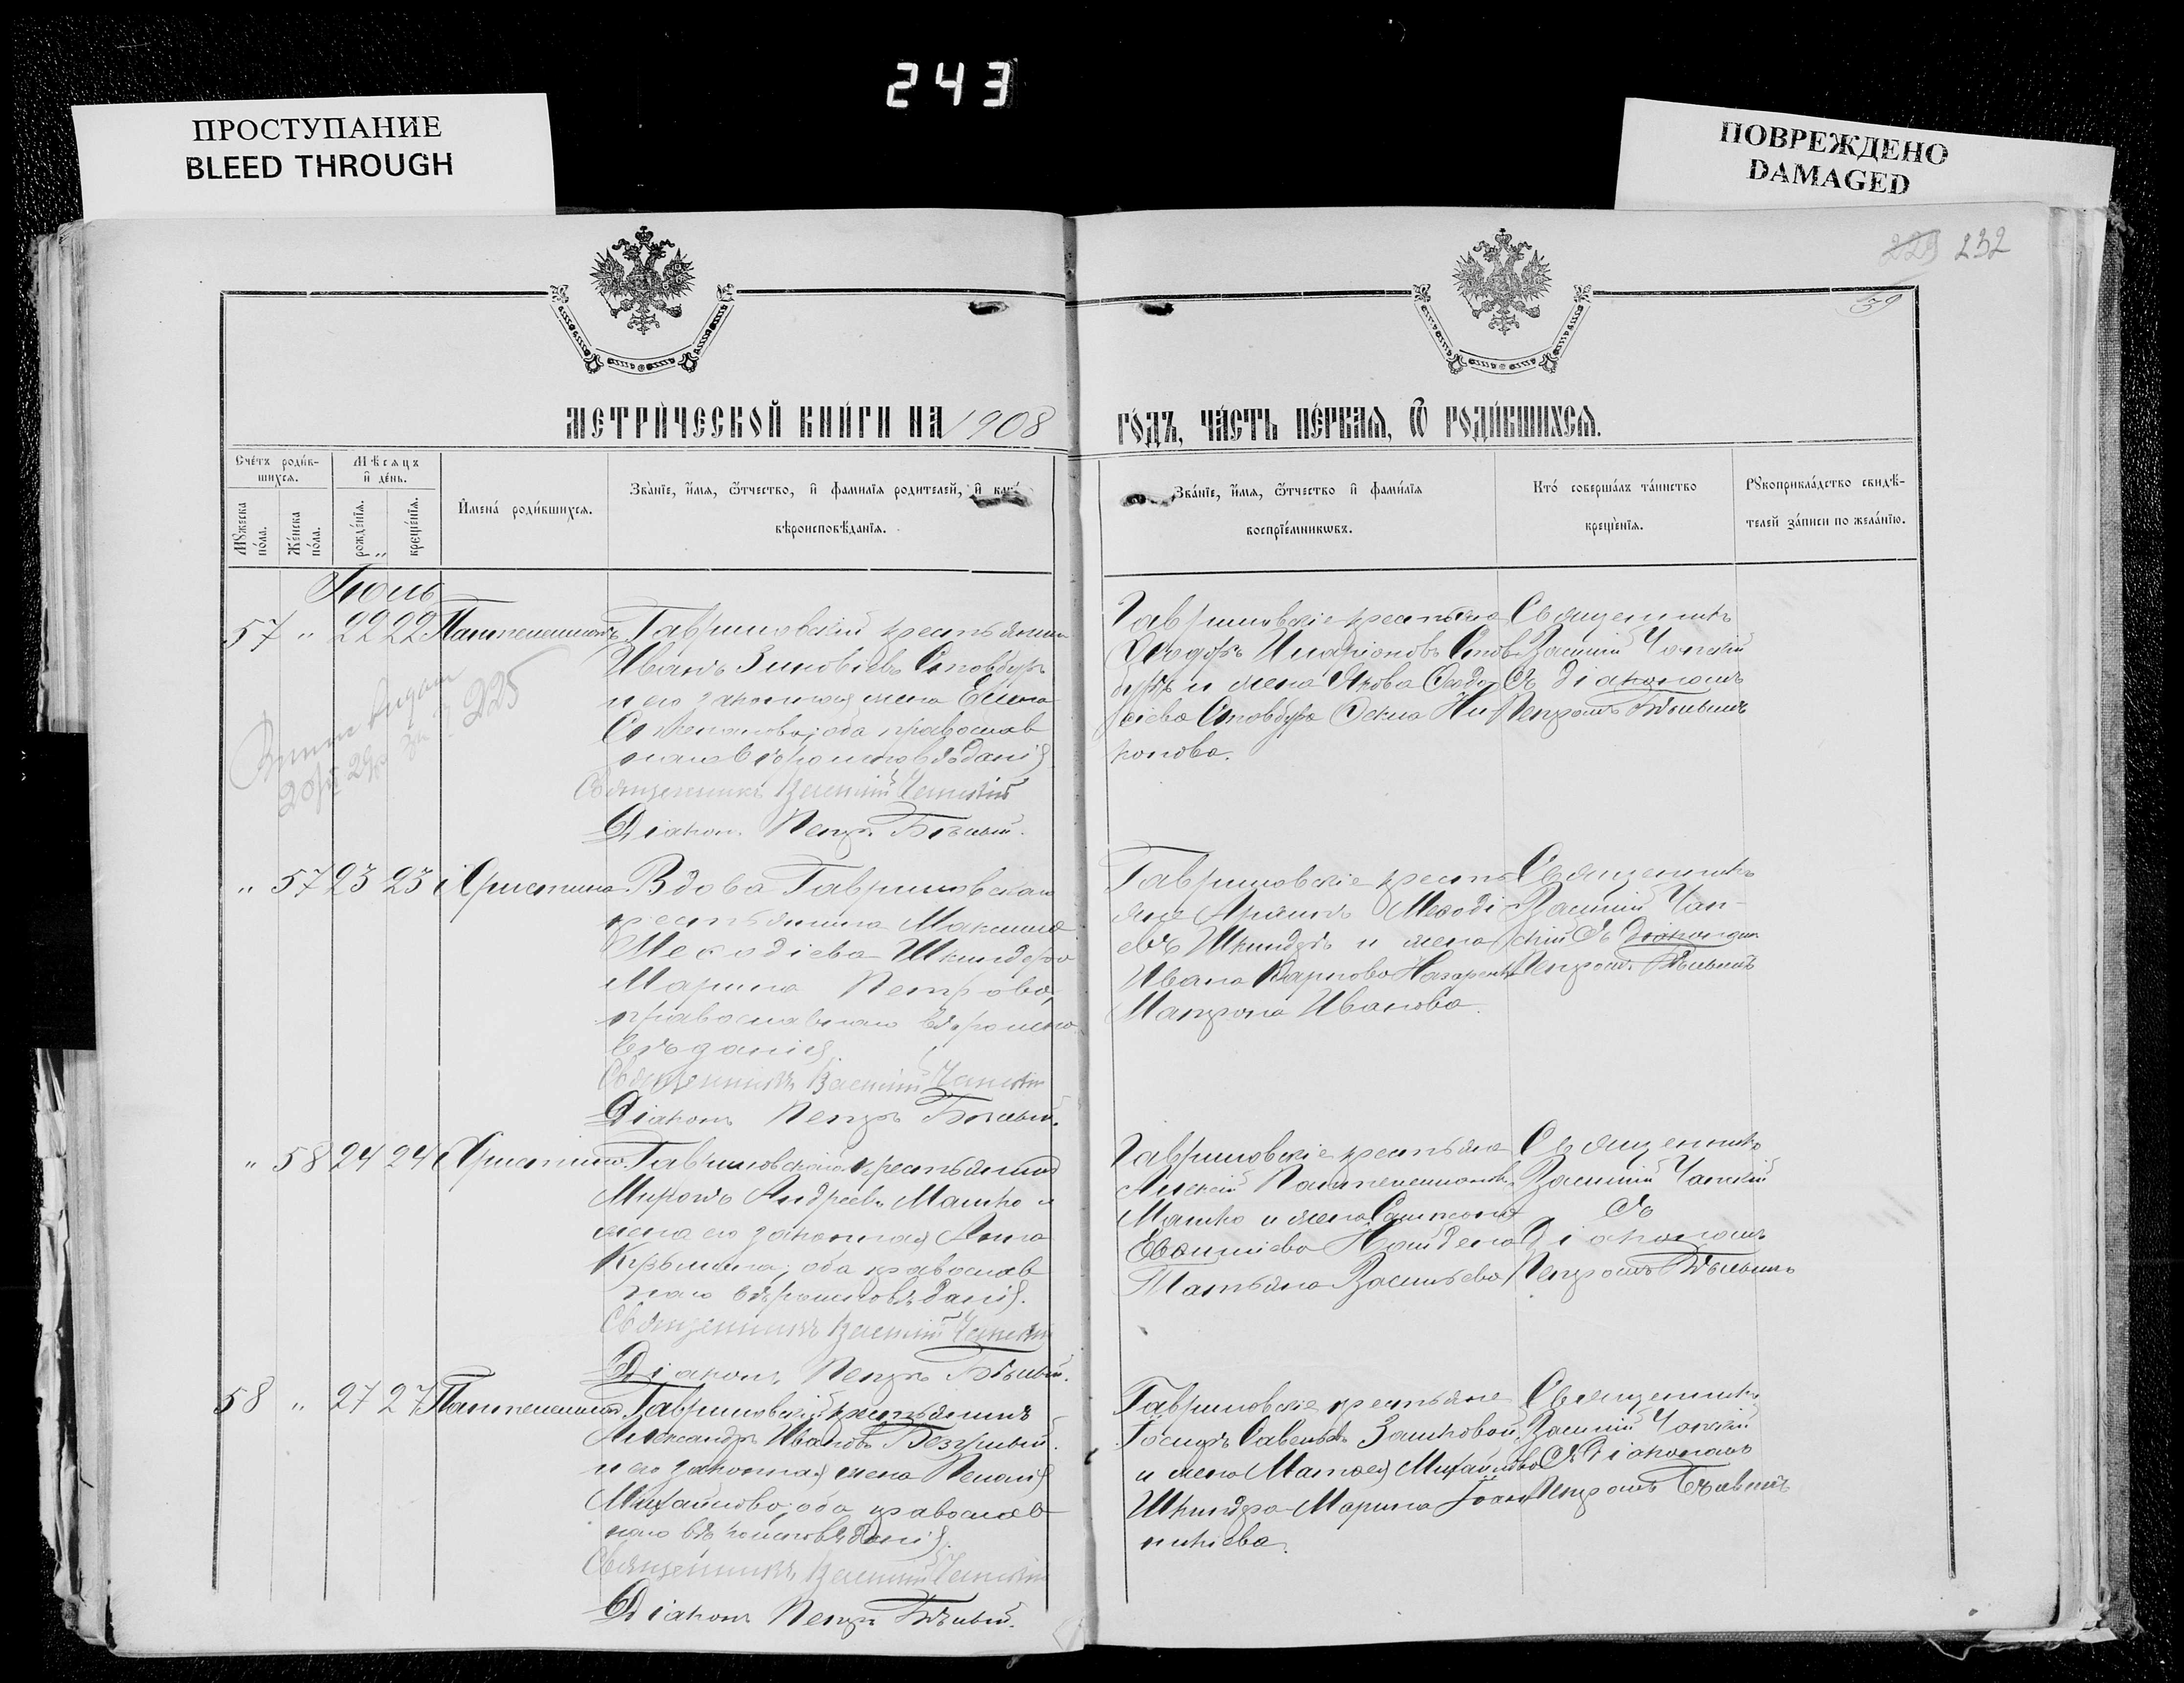 243
ПРОСТУПАНИЕ
BLEED THROUGH
ПОВРЕЖДЕНО
DAMAGED
229 232
59
МЕТРИ́ЧЕСКОЙ КНИ́ГИ НА 1908
ГО́ДЪ, ЧА́СТЬ ПЕ́РВАѦ, Ѿ РОДИ́ВШИХСѦ.
Сче́тъ роди́вшихсѧ.
Мѣ́сѧцъ и҆ де́нь.
Мꙋ́жеска по́ла.
Же́нска по́ла.
рожде́нїѧ.
креще́нїѧ.
И҆мена̀ роди́вшихсѧ.
Зва́нїе, и҆́мѧ, ѻ҆́тчество, и҆ фами́лїѧ роди́телей, и҆
вѣроисповѣ́данїѧ.
Зва́нїе, и҆́мѧ, ѻ҆́тчество и҆ фами́лїѧ
воспрїе́мникѡвъ.
Кто̀ соверша́лъ та́инство
креще́нїѧ.
Рꙋкоприкла́дство свидѣ́-
телей за́писи по жела́нїю.
Іюль
57 " 22 22 Пантелеимонъ
Гавриловскій крестьянинъ
Иванъ Зиновіевъ Стовбуръ
и его законная жена Елена
оба православ
наго вѣроисповѣданія
Священникъ Василій Чапскій
Діаконъ Петръ Бѣлый.
225
Гавриловскіе крестьяне
Ѳеодоръ Иларіоновъ Стов
буръ и жена Якова Ѳеодо
сіева Стовбура Ѳекла Ни
конова.
Священникъ
Василій Чапскій
съ діакономъ
Петромъ Бѣлымъ
" 57 23 23 Христина
Вдова Гавриловскаго
крестьянина Максима
Меѳодіева Шкиндера
Марина Петрова,
православнаго вѣроиспо
вѣданія.
Священникъ Василій Чапскій
Діаконъ Петръ Бѣлый.
Гавриловскіе кресть
яне Меѳоді
евъ Шкиндеръ и жена
Ивана Карпова Назаренка
Матрона Иванова.
Священникъ
Василій Чап-
скій съ діакономъ
Петромъ Бѣлымъ
" 58 24 24 Христина
Гавриловскій крестьянинъ
Миронъ Андреевъ Машко и
жена его законная Анна
Кузьмина, оба православ
наго вѣроисповѣданія.
Священникъ Василій Чапскій
Діаконъ Петръ Бѣлый.
Гавриловскіе крестьяне
Алексій Пантелеимоновъ
Машко и жена Сампсона
Евѳиміева Найдена
Татьяна Васильева
Священникъ
Василій Чапскій
съ
Діакономъ
Петромъ Бѣлымъ
58 " 27 27 Пантелеимонъ
Гавриловскій крестьянинъ
Александръ Ивановъ Безуглый
и его законная жена Пелагія
Михайлова, оба православ
наго вѣроисповѣданія.
Священникъ Василій Чапскій
Діаконъ Петръ Бѣлый.
Гавриловскіе крестьяне
Іосифъ Савельевъ Зашковой
и жена Матѳея Михайлова
Шкиндера Марина Іоан
никіева.
Священникъ
Василій Чапскій
съ Діакономъ
Петромъ Бѣлымъ